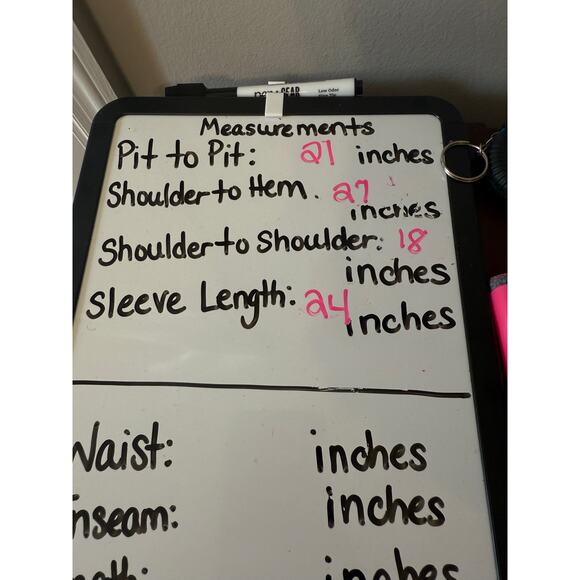 pen+GEAR Low Odor
Measurements
Pit to Pit: 21 inches
Shoulder to Hem. 27
inches
Shoulder to Shoulder: 18
inches
Sleeve Length: 24
inches
Waist: inches
nseam: inches
inches